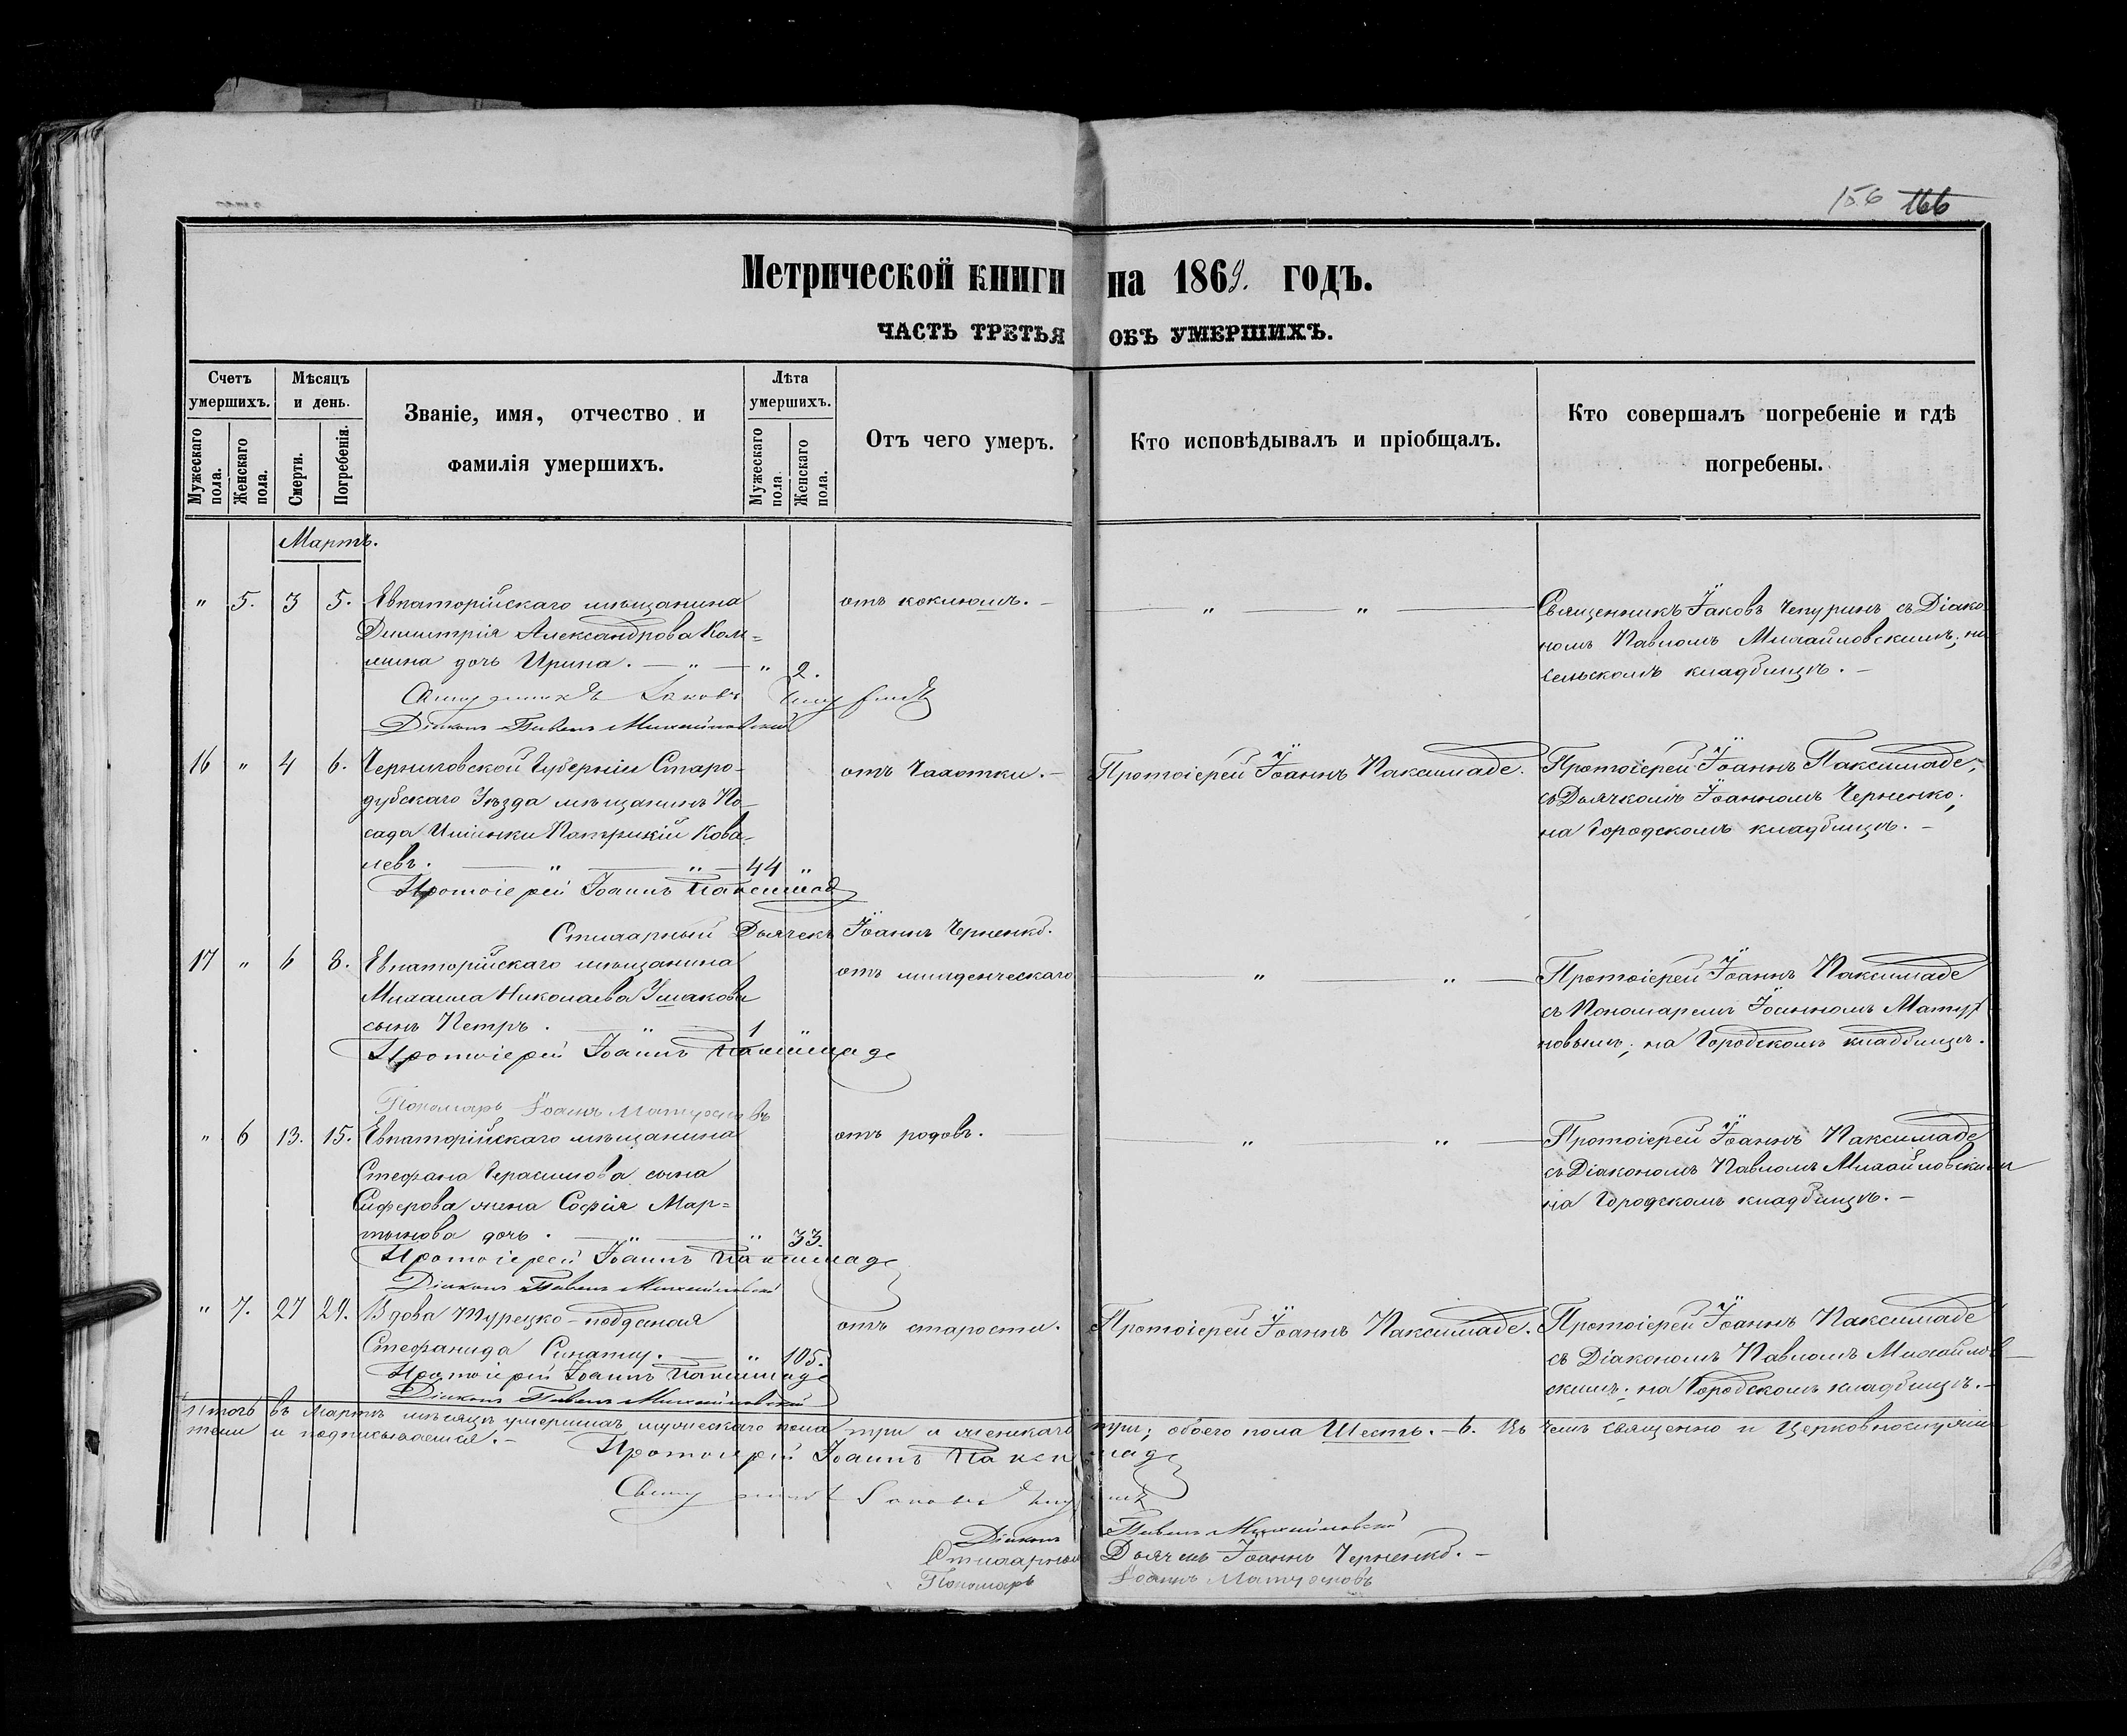 156 166
Метрической книги на 1869. годъ.
ЧАСТЬ ТРЕТЬЯ ОБЪ УМЕРШИХЪ.
Счетъ умершихъ.
Мужескаго пола.
Женскаго пола.
Мѣсяцъ и день.
Смерти.
Погребенія.
Званіе, имя, отчество и фамилія умершихъ.
Лѣта умершихъ.
Мужескаго пола.
Женскаго пола.
Отъ чего умеръ.
Кто исповѣдывалъ и пріобщалъ.
Кто совершалъ погребеніе и гдѣ погребены.
Мартъ.
" 5. 3 5. Евпаторійскаго мѣщанина
Димитрія Александрова
дочь Ирина. — " — " 2.
отъ коклюша. —
— " — " —
Священникъ Іаковъ Чепуринъ съ Діако
номъ Павломъ Михайловскимъ; на
сельскомъ кладбищѣ. —
Священникъ Іаковъ Чепуринъ
Діаконъ Павелъ Михайловскій
16 " 4 6. Черниговской Губерніи Старо-
дубскаго Уѣзда мѣщанинъ По-
сада Патрикій Кова-
левъ. — " — " — 44 "
отъ Чахотки. —
Протоіерей Іоаннъ Паксимаде.
Протоіерей Іоаннъ Паксимаде,
съ Дьячкомъ Іоанномъ Черненко;
на Городскомъ кладбищѣ. —
Протоіерей Іоаннъ Паксимаде
Стихарный Дьячекъ Іоаннъ Черненко.
17 " 6 8. Евпаторійскаго мѣщанина
Михаила Николаева Ушакова
сынъ Петръ. — " — 1 "
отъ младенческаго
— " — " —
Протоіерей Іоаннъ Паксимаде
съ Пономаремъ Іоанномъ
новымъ; на Городскомъ кладбищѣ.
Протоіерей Іоаннъ Паксимаде
Пономарь Іоаннъ
" 6 13. 15. Евпаторійскаго мѣщанина
Стефана Герасимова сына
Сиферова жена Софія Мар=
тынова дочь. — " — " 33.
отъ родовъ.
" " —
Протоіерей Іоаннъ Паксимаде
съ Діакономъ Павломъ Михайловскимъ
на Городскомъ кладбищѣ. —
Протоіерей Іоаннъ Паксимаде
Діаконъ Павелъ Михайловскій
" 7. 27 29. Вдова Турецко-подданая
Стефанида — " 105.
отъ старости.
Протоіерей Іоаннъ Паксимаде.
Протоіерей Іоаннъ Паксимаде
съ Діакономъ Павломъ Михайлов
скимъ; на Городскомъ кладбищѣ. —
Протоіерей Іоаннъ Паксимаде
Діаконъ Павелъ Михайловскій
Итого въ Мартѣ мѣсяцѣ умершихъ мужескаго пола три и женскаго три; обоего пола Шесть. — 6. Въ чемъ священно и Церковнослужи
тели и подписываемся. —
Протоіерей Іоаннъ Паксимаде
Священникъ Іаковъ Чепуринъ
Діаконъ Павелъ Михайловскій
Стихарный Дьячекъ Іоаннъ Черненко. —
Пономарь Іоаннъ